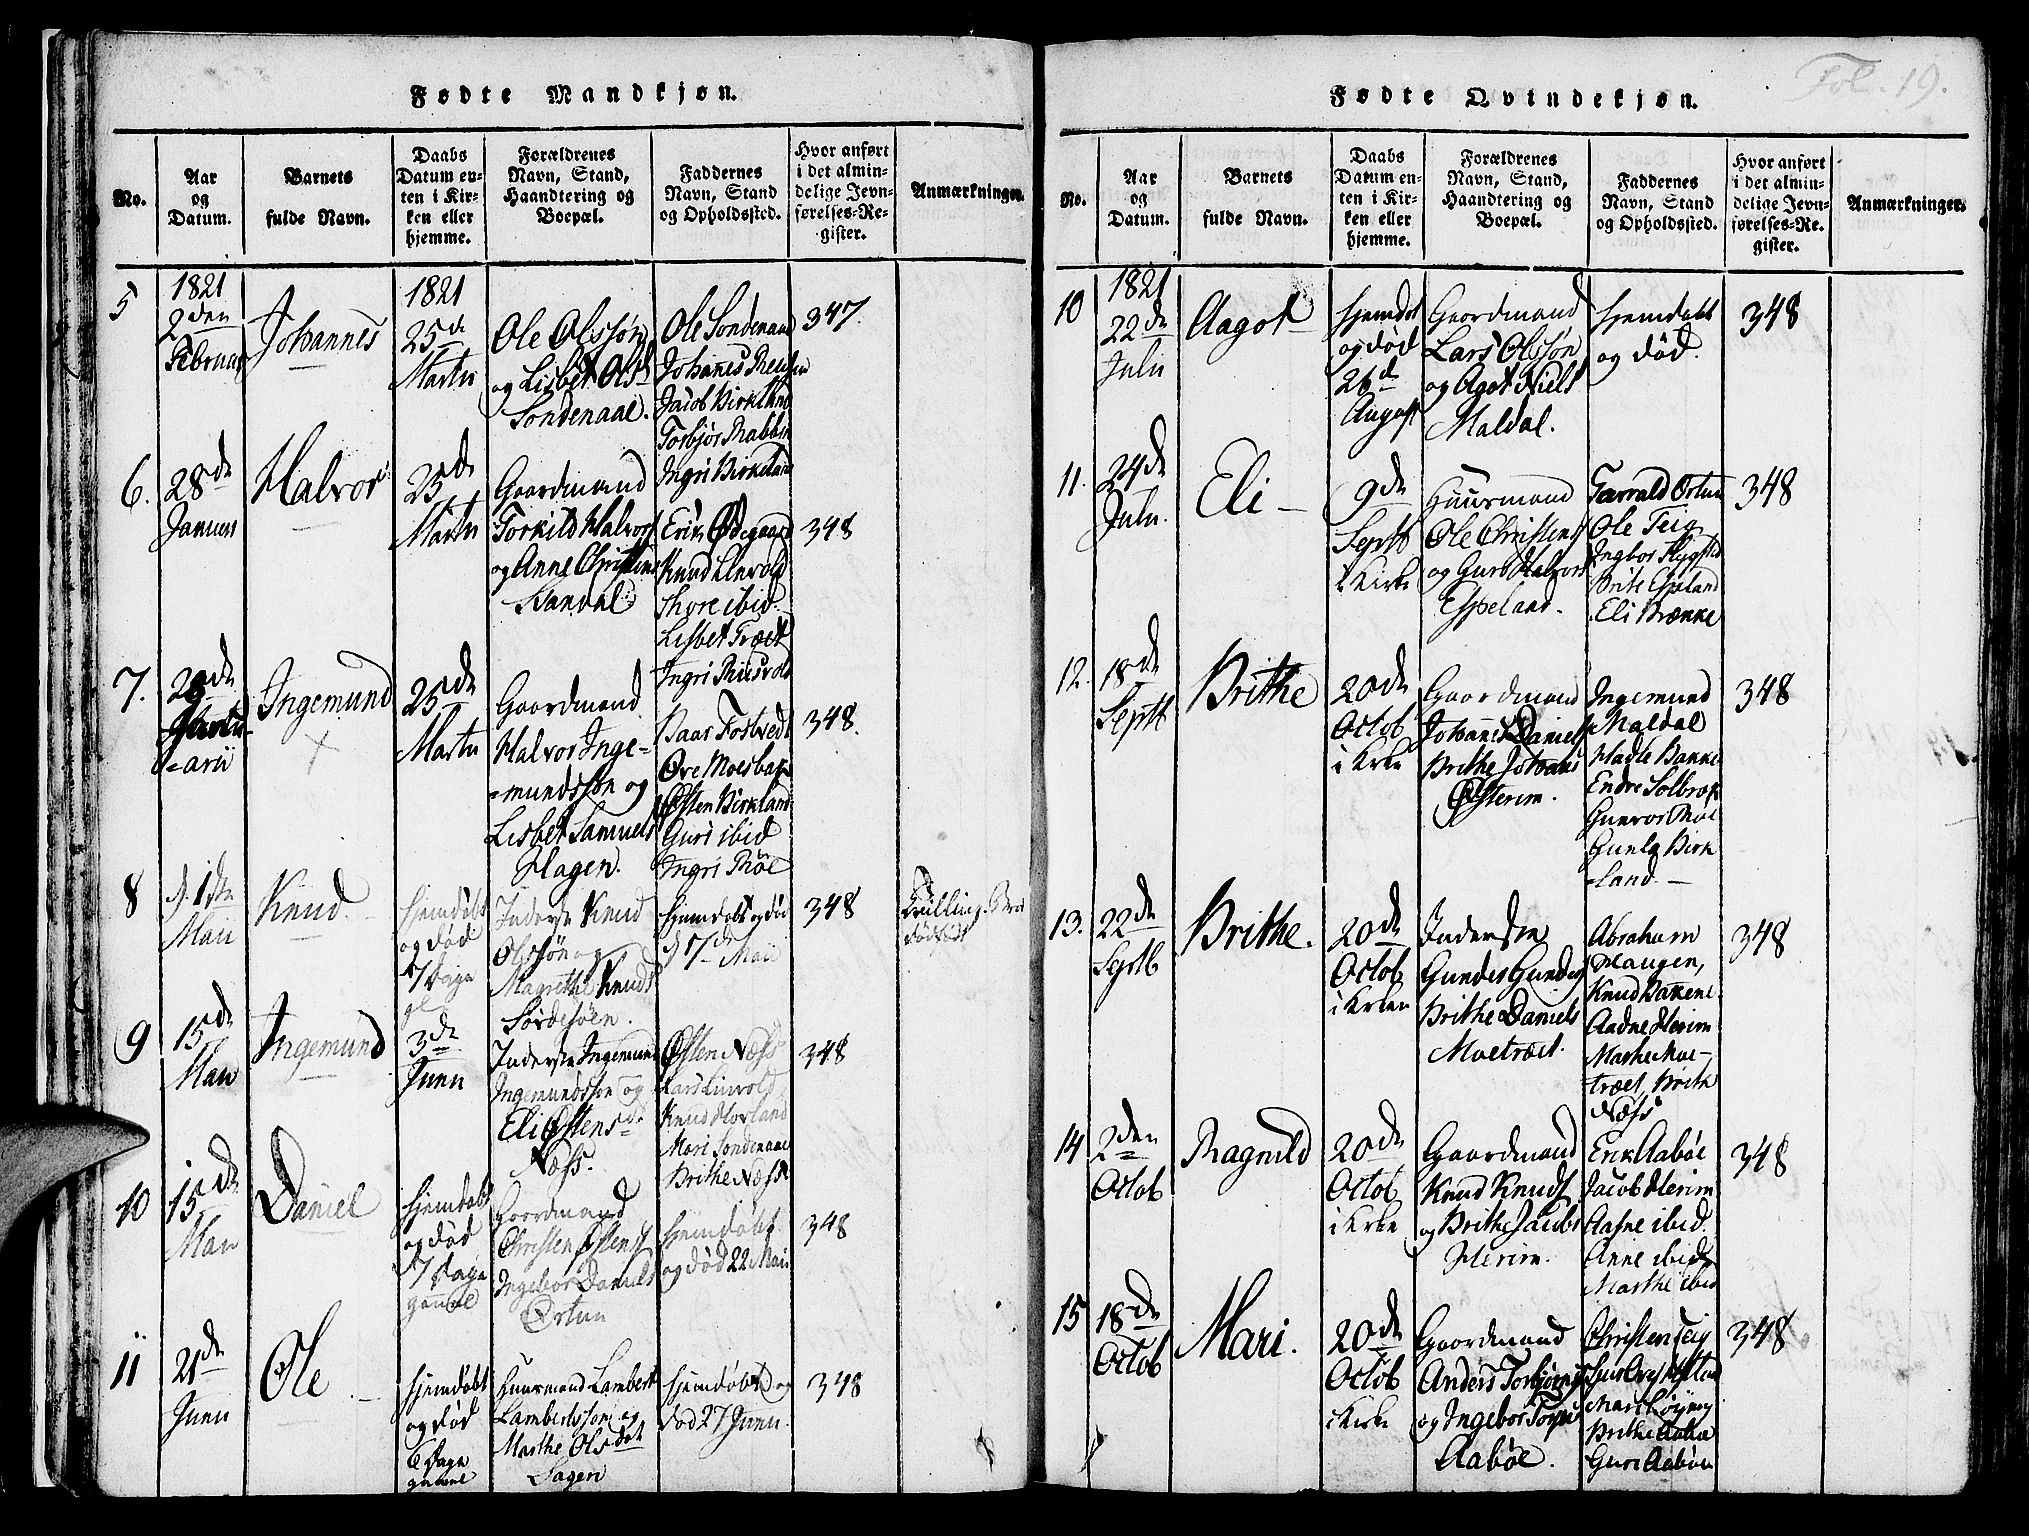 Fødte Mandkjøn.
No.
Aar
og
Datum.
Barnets
fulde Navn.
Daabs
Datum en-
ten i Kir-
ken eller
hjemme.
Forældrenes
Navn, Stand,
Haandtering og
Boepæl.
Faddernes
Navn, Stand
og Opholdssted.
Hvor anført
i det almin-
delige Jevn-
førelses-Re-
gister.
Anmærkninger.
5
1821
2den
Februar
Johannes
1821
25de
Martii
Ole Olssøn
og Lisbet Olsd
Søndenaae.
Ole Søndenaae
Johannes
Jacob Birkland
Torbjør
Ingri Birkeland
347
6.
28de
Januari
Halvor
25de
Martii
Gaardmand
Torkild Halvors
og Anne Christens
Sandal
Erik Ødegaard
Knud Linvold
Thore ibid.
Lisbet Træet
Ingri
348
7.
29de
Janu-
-arii
Ingemund
25de
Martii
Gaardmand
Halvor Inge-
-mundssøn og
Lisbet Samuels
Hagen.
Østen Birkland
Guri ibid
Ingri Møe
348.
8
d. 1ste
Maii
Knud
hjemdøbt
og død
7 Dage
gl
Inderste Knud
Olssøn og
Magrethe Knuds
Sørdesøen.
hjemdøbt og død
d 7de Maii
348
Tvilling.
dødfødt
9
15de
Maii
Ingemund
3de
Junii
Inderste Ingemund
Ingemundssøn og
Eli Østensd.
Næss.
Østen Næss
Lars Linvold
Knud Hovland
Mari Søndenaae
Brithe Næss
348
10
15de
Maii
Daniel
hjemdøbt
og død
7 Dage
gammel
Gaardmand
Christen Østens
Ingebor Daniels
Ørtun
hjemdøbt
og død 22 Maii
348
11
21de
Junii
Ole
hjemdøbt
og død
6 Dage
gammel
Huusmand Lambert
Lambertssøn og
Marthe Olsdat
Sagen
hjemdøbt og
død 27 Junii.
348
Fol. 19.
Fødte Qvindekjøn.
No.
Aar
og
Datum.
Barnets
fulde Navn.
Daabs
Datum en-
ten i Kir-
ken eller
hjemme.
Forældrenes
Navn, Stand,
Haandtering og
Boepæl.
Faddernes
Navn, Stand
og Opholdssted.
Hvor anført
i det almin-
delige Jevn-
førelses-Re-
gister.
Anmærkninger.
10
1821
22de
Julii
Aagot
hjemdøbt
og død
26de
August
Gaardmand
Lars Olssøn
og Agot Niels
Maldal.
hjemdøbt
og død.
348
11.
24de
Julii.
Eli
9de
Septb
i Kirke
Huusmand
Ole Christens
og Guro Halvors
Espeland.
Tarrald Ørtun
Ole Teig
Ingbor
Brite Espeland
Eli Brække
348
12.
18de
Septb
Brithe
20de
Octob
i Kirke
Gaardmand
Johannes Daniels
Brithe Johans
Østerim.
Ingemund
Maldal
Hadle Bakke
Endre Solbræk
Gunvor Moe
Gunla Birk
-land.
348
13.
22de
Septb
Brithe.
20de
Octob
i Kirke
Inderste
Gunder Gunders
Brithe Daniels
Moetræet.
Abraham
Haugen,
Knud Bakkene
Aadne Herim
Marthe Moe-
træet, Brith
Næss
348
14
2den
Octob
Ragnild
20de
Octob
i Kirke
Gaardmand
Knud Knuds
og Brithe Jacobs
Herim.
Erik Aabøe
Jacob Herim
Aasne ibid.
Anne ibid
Marthe ibid
348
15
18de
Octob
Mari.
20de
Octob
i Kirke
Gaardmand
Anders Torbjørns
og Ingebor
Aabøe.
Christen Teig
Brithe Aabøe
Guri Aabøe
348